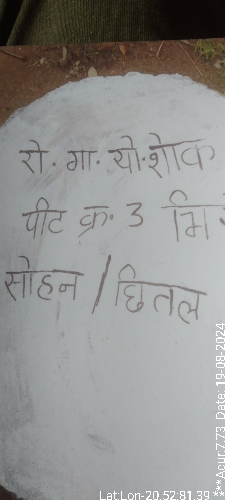 रो. गा. यो. शोक
पीट क्र. 3 मि
सोहन / छितल
Lat:Lon-20.52:81.39
***Acur:7.73 Date: 19-08-2024